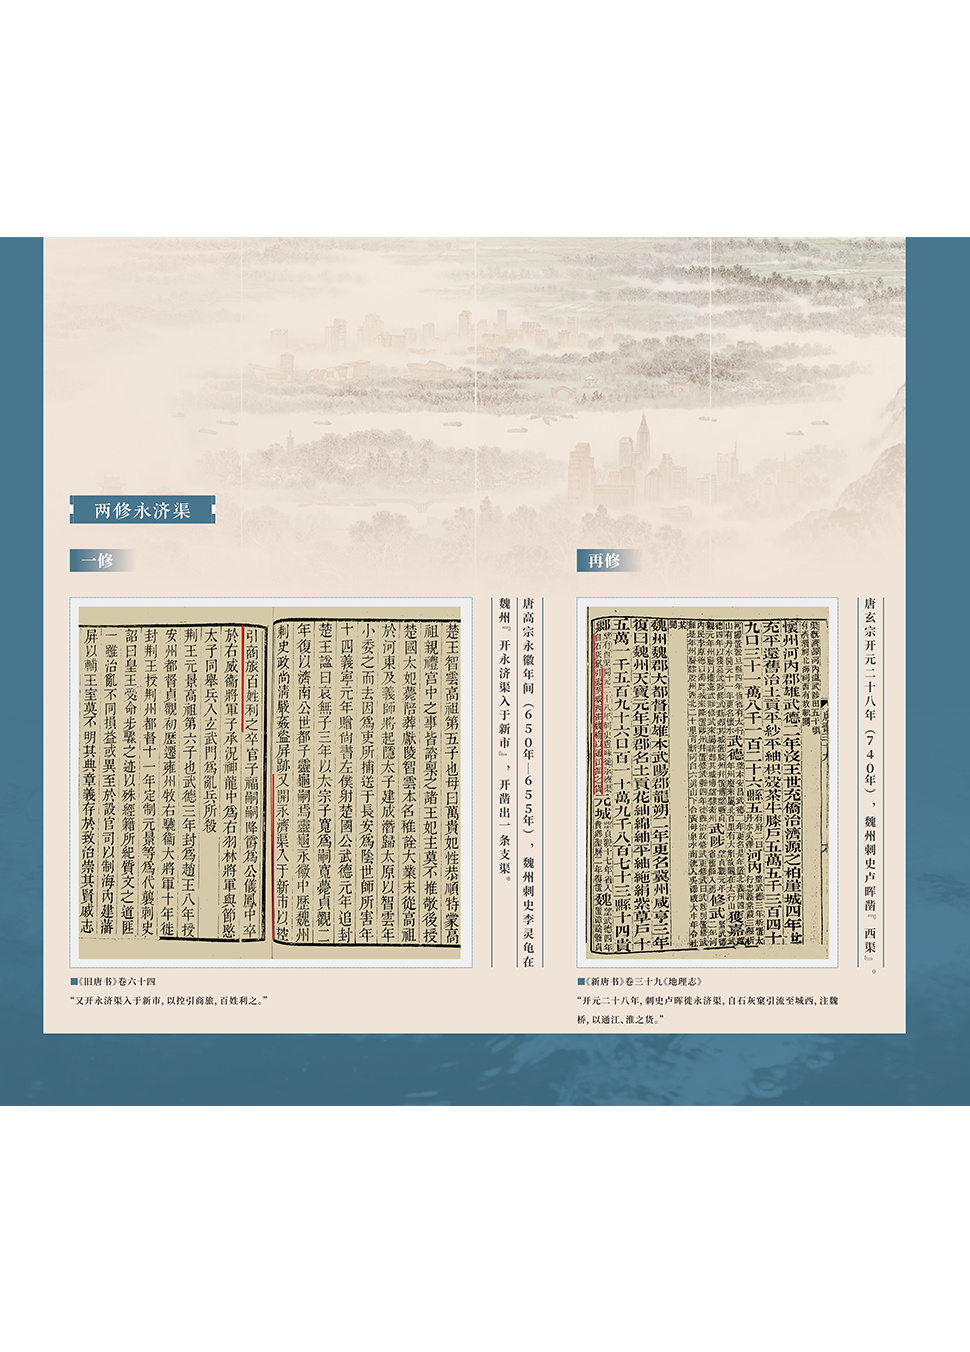 两修永济渠
一修
楚王智雲高祖第五子也母曰萬貴妃性恭順特蒙高
祖親禮宮中之事皆諮稟之諸王妃主莫不推敬後授
楚國太妃薨陪葬獻陵智雲本名稚詮大業末從高祖
於河東及義師將起隱太子建成潛歸太原以智雲年
小委之而去因爲吏所捕送于長安爲陰世師所害年
十四義寧元年贈尚書左僕射楚國公武德元年追封
楚王諡曰哀無子三年以太宗子寬爲嗣寬薨貞觀二
年復以濟南公世都子靈龜嗣焉靈龜永徽中歷魏州
刺史政尚清嚴姦盜屏跡又開永濟渠入于新市以控
引商旅百姓利之卒官子福嗣嗣降爵爲公儀鳳中卒
於右威衞將軍子承況神龍中爲右羽林將軍與節愍
太子同舉兵入玄武門爲亂兵所殺
荆王元景高祖第六子也武德三年封爲趙王八年授
安州都督貞觀初歷遷雍州牧右驍衞大將軍十年徙
封荆王授荆州都督十一年定制元景等爲代襲刺史
詔曰皇王受命步驟之迹以殊經籍所紀質文之道匪
一雖治亂不同損益或異至於設官司以制海內建藩
屏以輔王室莫不明其典章義存於致治崇其賢戚志
唐高宗永徽年间（650年—655年），魏州刺史李灵龟在
魏州『开永济渠入于新市』，开凿出一条支渠。
■《旧唐书》卷六十四
“又开永济渠入于新市，以控引商旅，百姓利之。”
再修
懷州河內郡雄武德二年沒王世充僑治濟源之柏崖城四年世
充平還舊治土貢平紗平紬枳殻茶牛膝戶五萬五千三百四十
九口三十一萬八千一百二十六縣五
河內
武德
武陟
修武
獲嘉
魏州魏郡大都督府雄本武陽郡龍朔二年更名冀州咸亨三年
復曰魏州天寶元年更郡名土貢花紬綿紬平紬絁絹紫草戶十
五萬一千五百九十六口百一十萬九千八百七十三縣十四貴
鄉
元城
唐玄宗开元二十八年（740年），魏州刺史卢晖凿『西渠』。
■《新唐书》卷三十九《地理志》
“开元二十八年，刺史卢晖徙永济渠，自石灰窠引流至城西，注魏
桥，以通江、淮之货。”